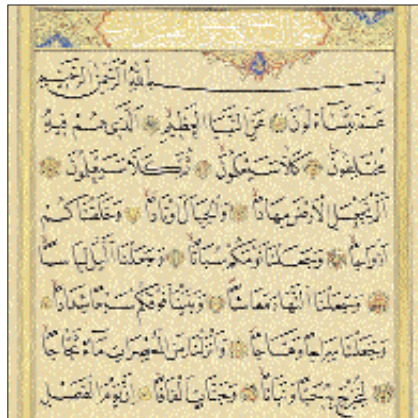 بسم الله الرحمن الرحيم
عم يتساءلون عن النبإ العظيم الذي هم فيه
مختلفون كلا سيعلمون ثم كلا سيعلمون
ألم نجعل الأرض مهادا والجبال أوتادا وخلقناكم
أزواجا وجعلنا نومكم سباتا وجعلنا الليل لباسا
وجعلنا النهار معاشا وبنينا فوقكم سبعا شدادا
وجعلنا سراجا وهاجا وأنزلنا من المعصرات ماء ثجاجا
لنخرج به حبا ونباتا وجنات ألفافا إن يوم الفصل